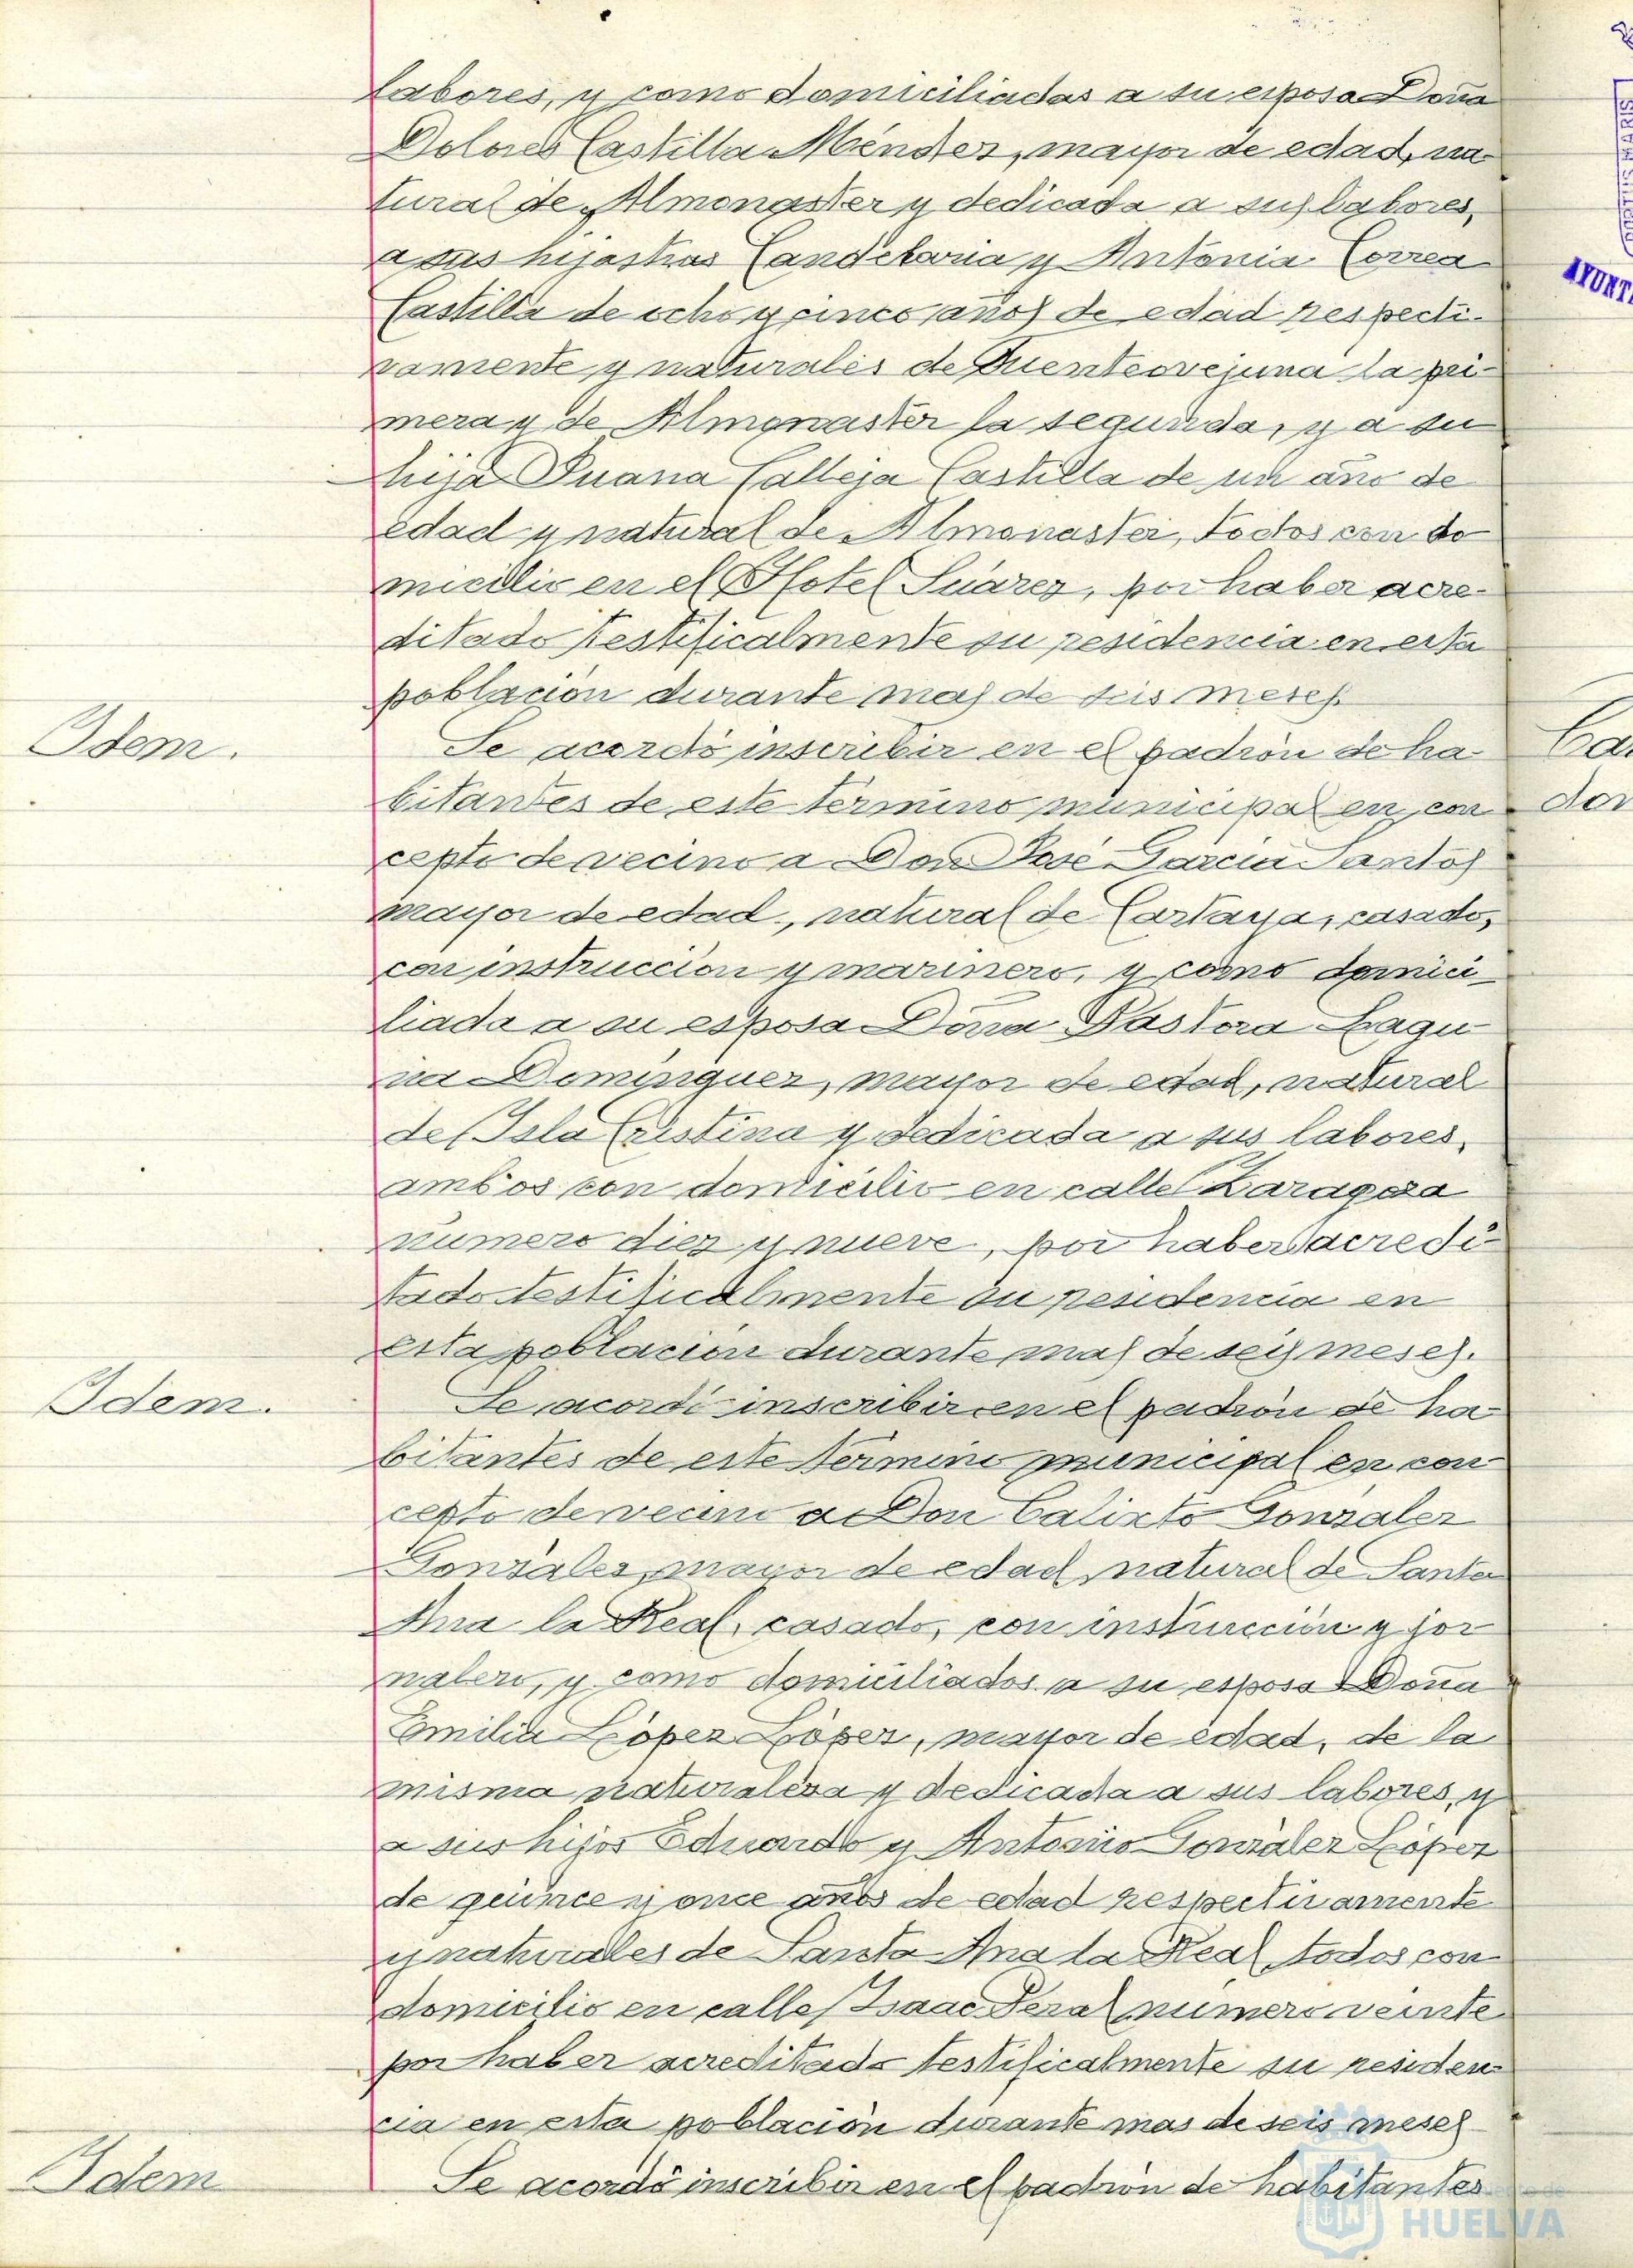 labores, y como domiciliadas a su esposa Doña
Dolores Castilla Méndez, mayor de edad, na-
tural de Almonaster y dedicada a sus labores,
a sus hijastras Candelaria y Antonia Correa
Castilla de ocho y cinco años de edad respecti-
vamente y naturales de Fuenteovejuna la pri-
mera y de Almonaster la segunda, y a su
hija Juana Calleja Castilla de un año de
edad y natural de Almonaster, todos con do
micilio en el Hotel Suárez, por haber acre-
ditado testificalmente su residencia en esta
población durante mas de seis meses.
Idem.
Se acordó inscribir en el padrón de ha-
bitantes de este término municipal en con
cepto de vecino a Don José Garcia Santos
mayor de edad, natural de Cartaya, casado,
con instrucción y marinero, y como domici-
liada a su esposa Doña Pastora Lagu
na Dominguez, mayor de edad, natural
de Isla Cristina y dedicada a sus labores,
ambos con domicilio en calle Zaragoza
número diez y nueve, por haber acredi-
tado testificalmente su residencia en
esta población durante mas de seis meses.
Idem.
Se acordó inscribir en el padrón de ha-
bitantes de este término municipal en con
cepto de vecino a Don Calixto González
González, mayor de edad, natural de Santa
Ana la Real, casado, con instrucción y jor
nalero, y como domiciliados a su esposa Doña
Emilia López López, mayor de edad, de la
misma naturaleza y dedicada a sus labores, y
a sus hijos Eduardo y Antonio González López
de quince y once años de edad respectivamente
y naturales de Santa Ana la Real, todos con
domicilio en calle Isaac Peral número veinte
por haber acreditado testificalmente su residen-
cia en esta población durante mas de seis meses
Idem
Se acordó inscribir en el padrón de habitantes
HUELVA